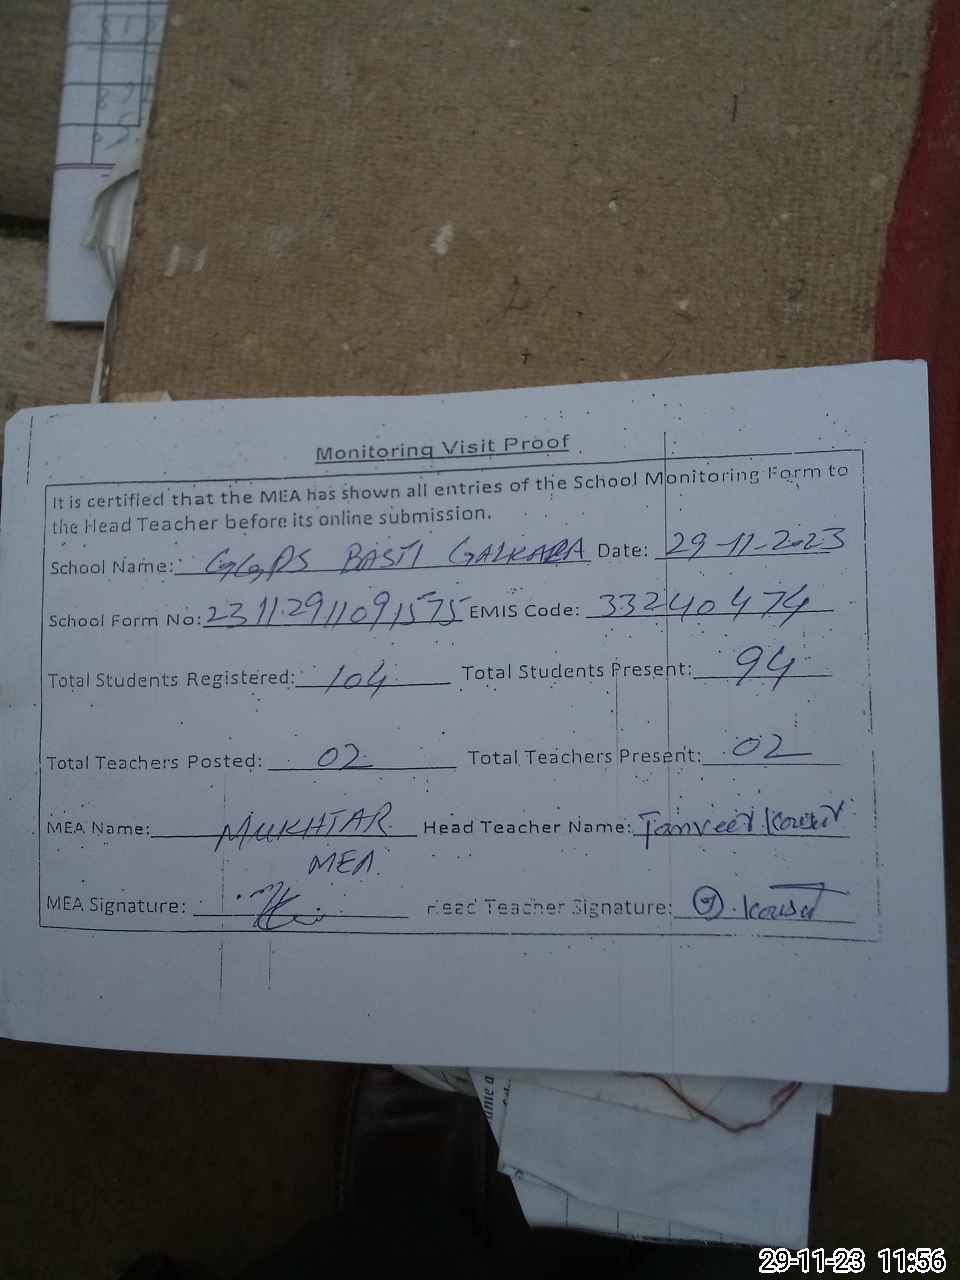 Monitoring Visit Proof
It is certified that the MEA has shown all entries of the School Monitoring Form to
the Head Teacher before its online submission.
School Name: GGPS BASTI GALKARA Date: 29-11-2023
School Form No: 23112911091575 EMIS Code: 33240474
Total Students Registered: 104 Total Students Present: 94
Total Teachers Posted: 02 Total Teachers Present: 02
MEA Name: MUKHTAR Head Teacher Name: Tanveer Kousar
MEA
MEA Signature: Head Teacher Signature:
ame a
29-11-23 11:56